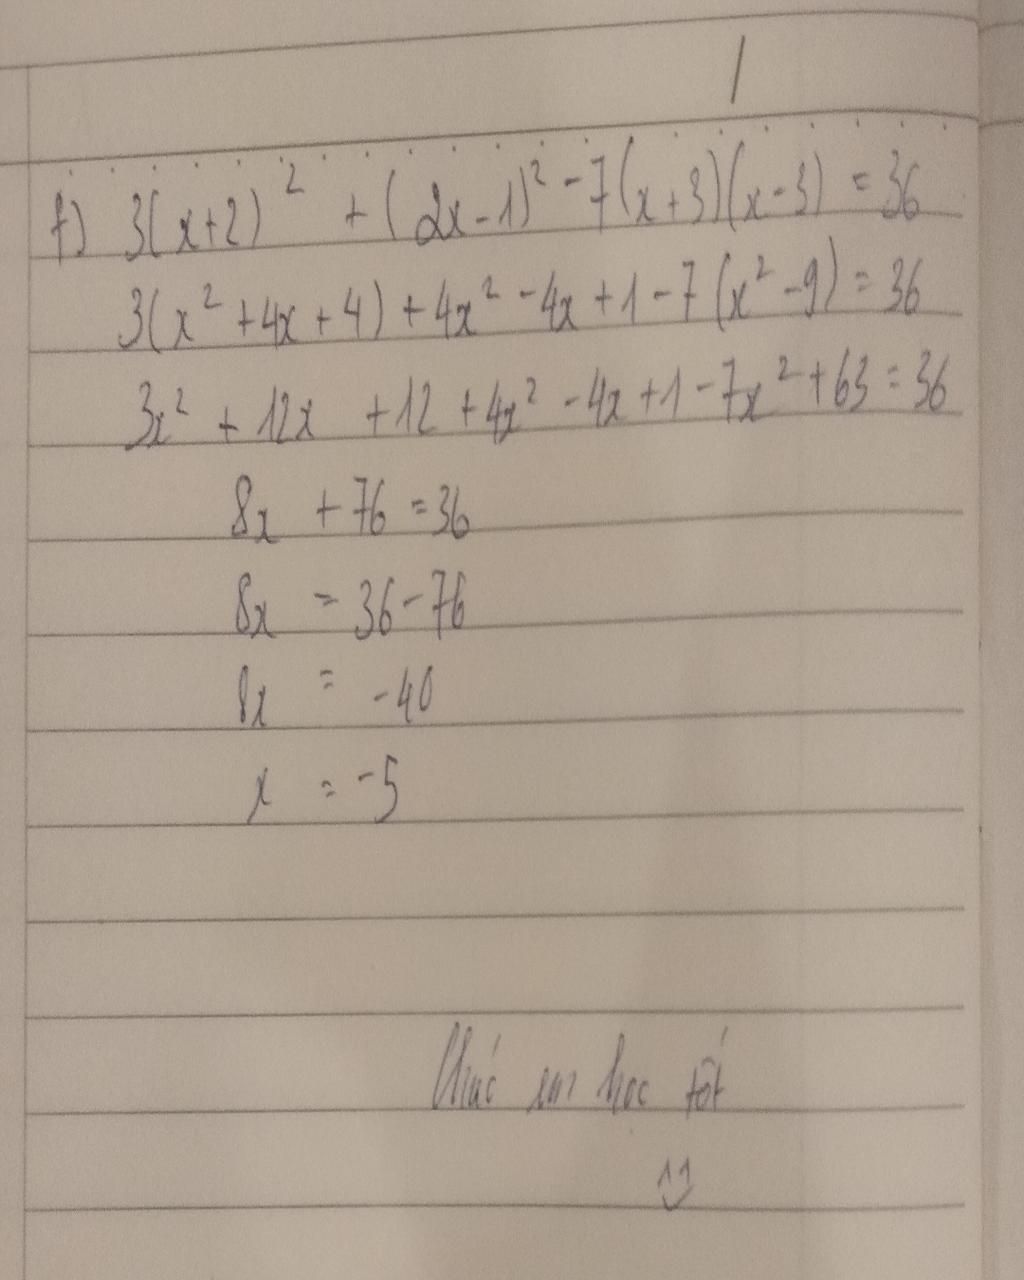 f) 3(x+2)² + (2x-1)² - 7(x+3)(x-3) = 36
3(x² + 4x + 4) + 4x² - 4x + 1 - 7(x² - 9) = 36
3x² + 12x + 12 + 4x² - 4x + 1 - 7x² + 63 = 36
8x + 76 = 36
8x = 36 - 76
8x = -40
x = -5
Chúc em học tốt